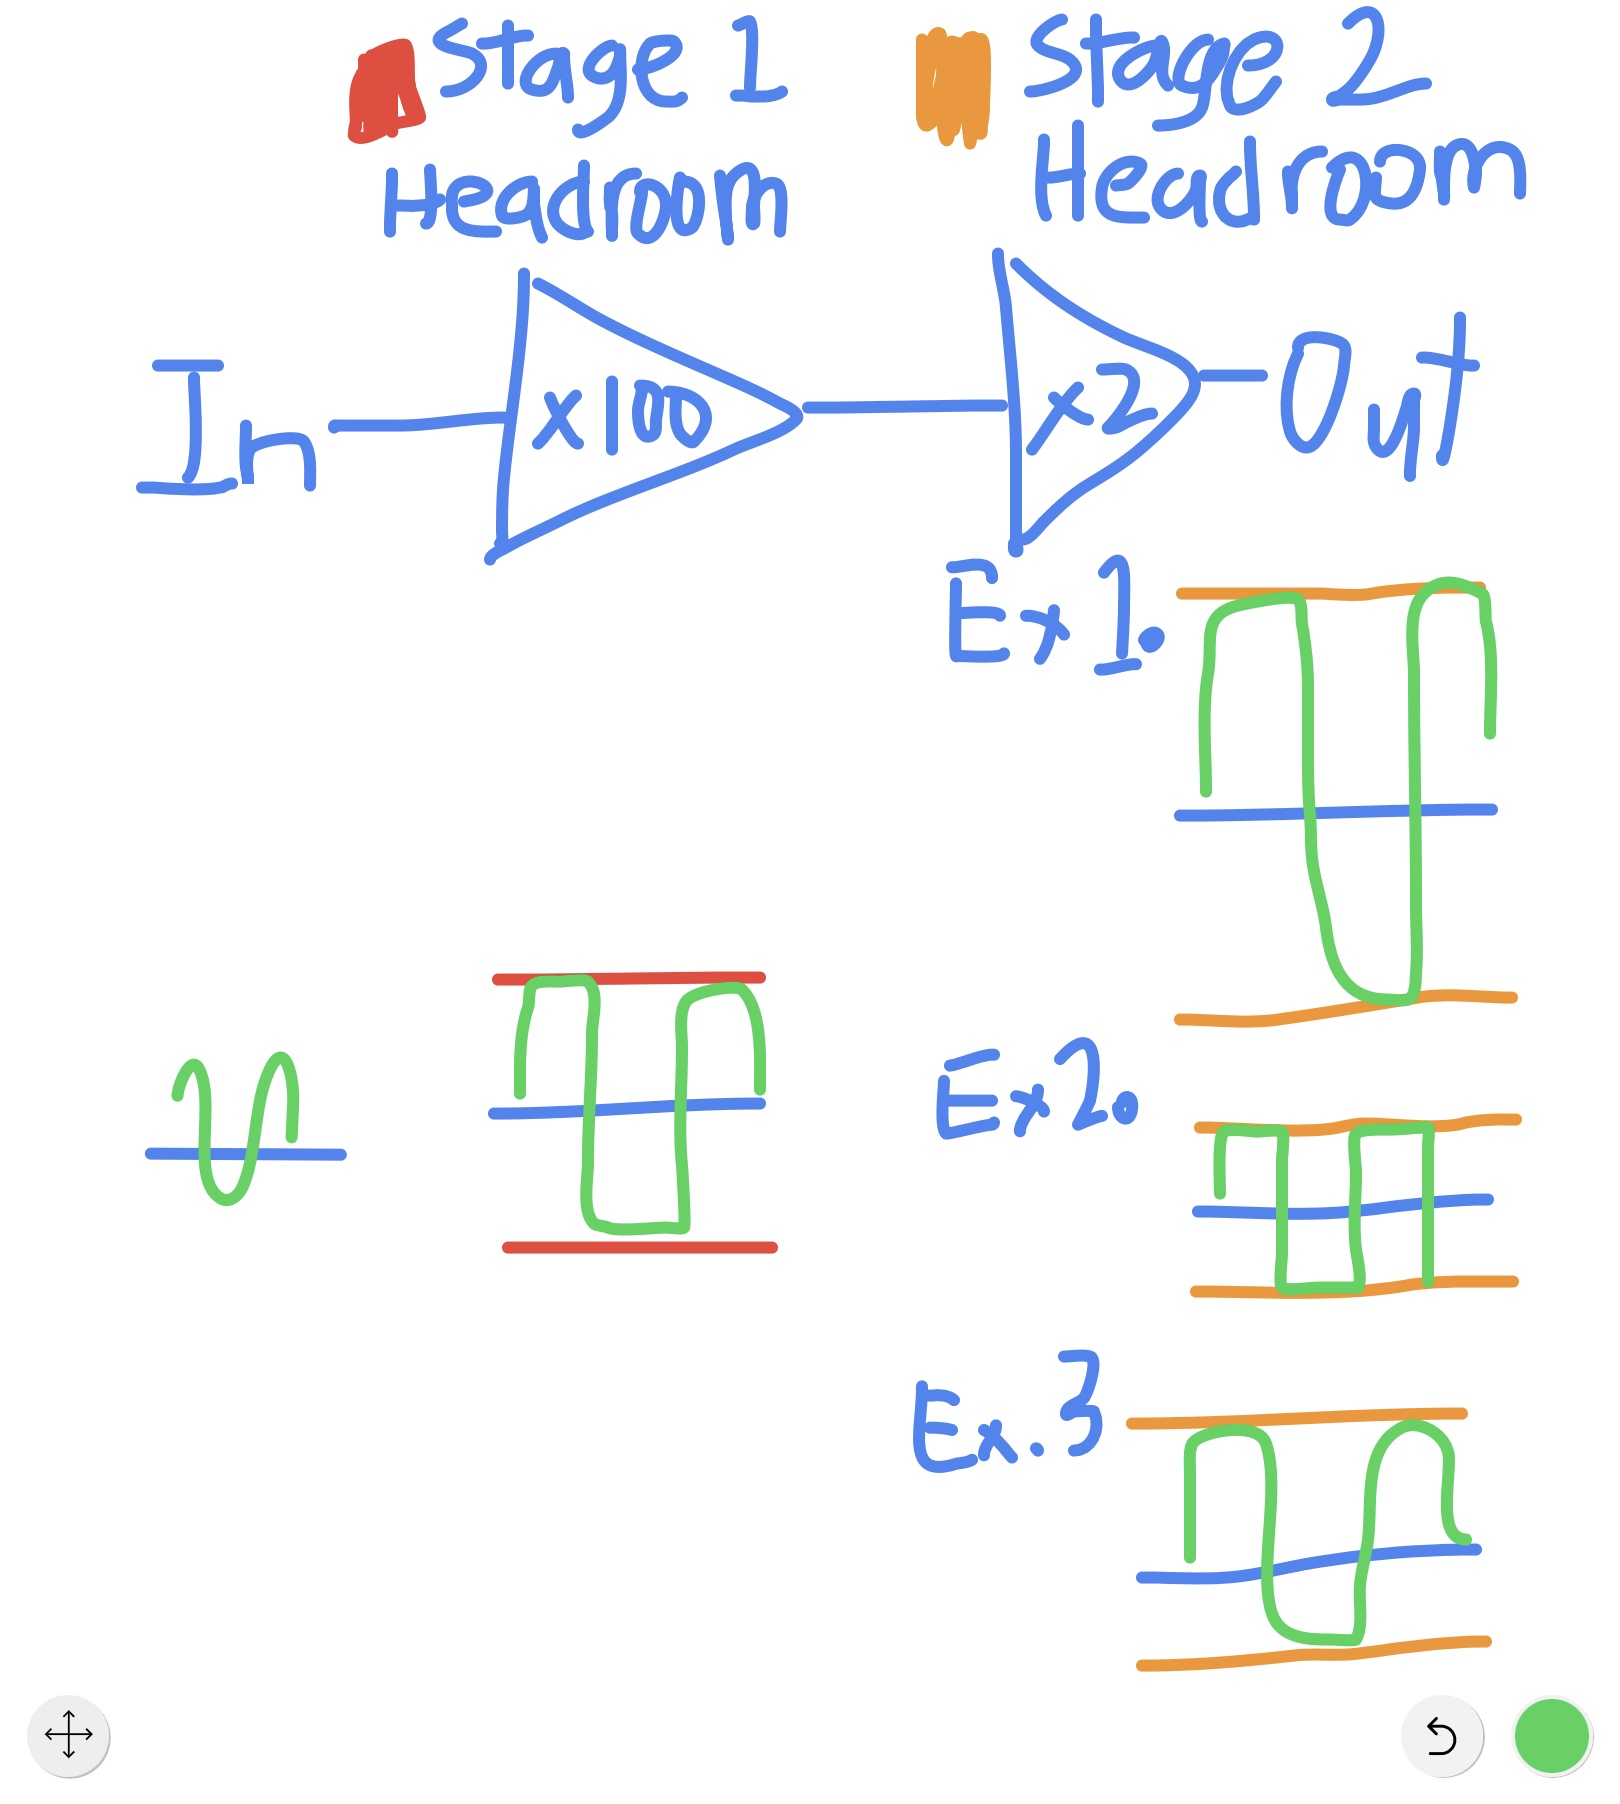 Stage 1
Headroom
Stage 2
Headroom
In
x100
x2
Out
Ex 1.
Ex 2.
Ex. 3